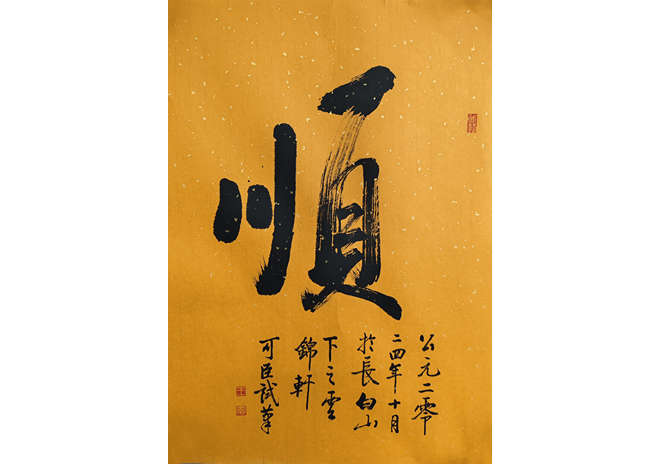 順
公元二零
二四年十月
於長白山
下之雲
錦軒
可臣試筆